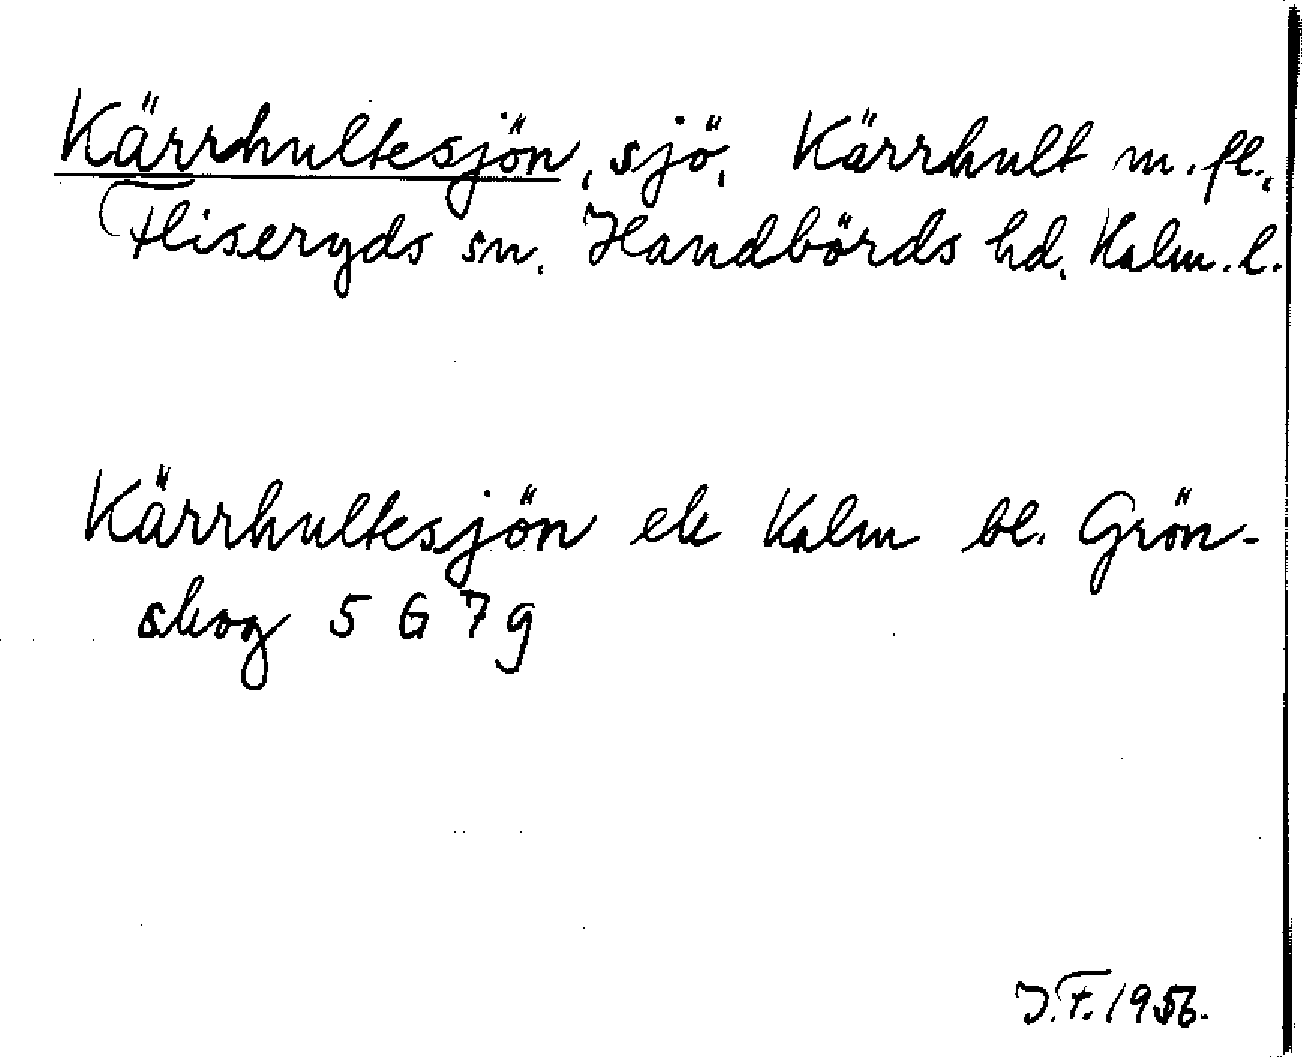 Kärrhultesjön, sjö, Kärrhult m. fl.,
Fliseryds sn, Handbörds hd, Kalm. l.
Kärrhultesjön ek Kalm bl. Grön-
skog 5 G 7 g
J. F. 1956.